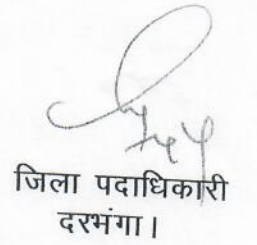 जिला पदाधिकारी
दरभंगा।